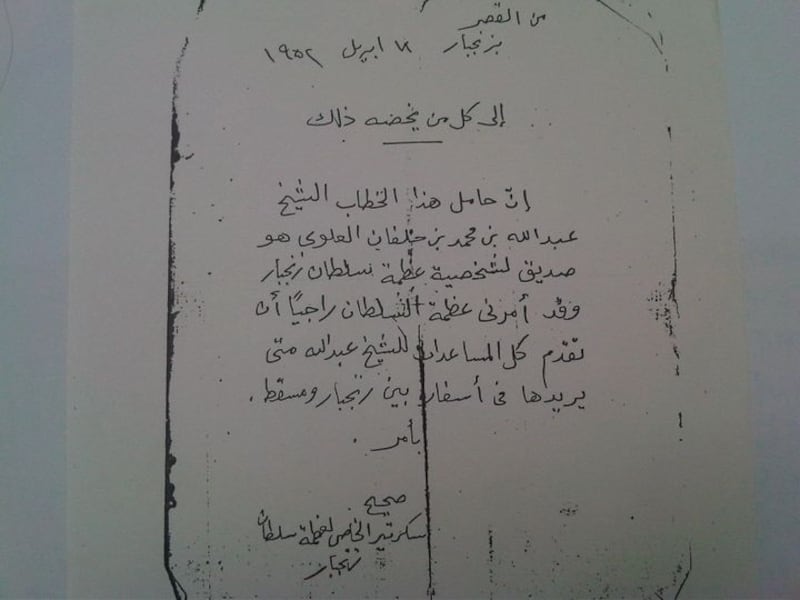 من القصر
بزنجبار ١٨ ابريل ١٩٥٢
إلى كل من يخصه ذلك
إنّ حامل هذا الخطاب الشيخ
عبدالله بن محمد بن خلفان العلوى هو
صديق لشخصية عظمة سلطان زنجبار
وقد أمرنى عظمة السُلطان راجيًا أن
تقدّم كل المساعدات للشيخ عبدالله متى
يريدها فى أسفار بين زنجبار ومسقط .
بأمر .
صحيح
سكرتير الخاص لعظمة سلطان
زنجبار